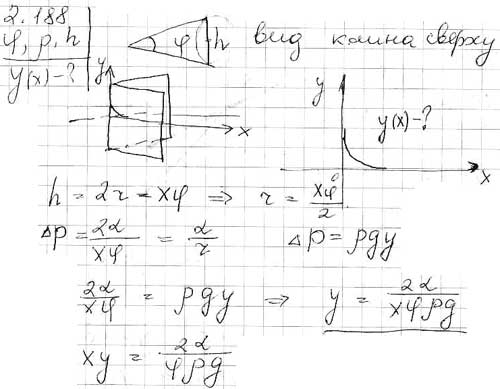 2.188
φ, ρ, h
y(x) - ?
φ h вид клина сверху
y
x
y
y(x) - ?
x
0
h = 2r = xφ ⇒ r = xφ/2
Δp = 2α/xφ = α/r Δp = ρgy
2α/xφ = ρgy ⇒ y = 2α/xφρg
xy = 2α/φρg